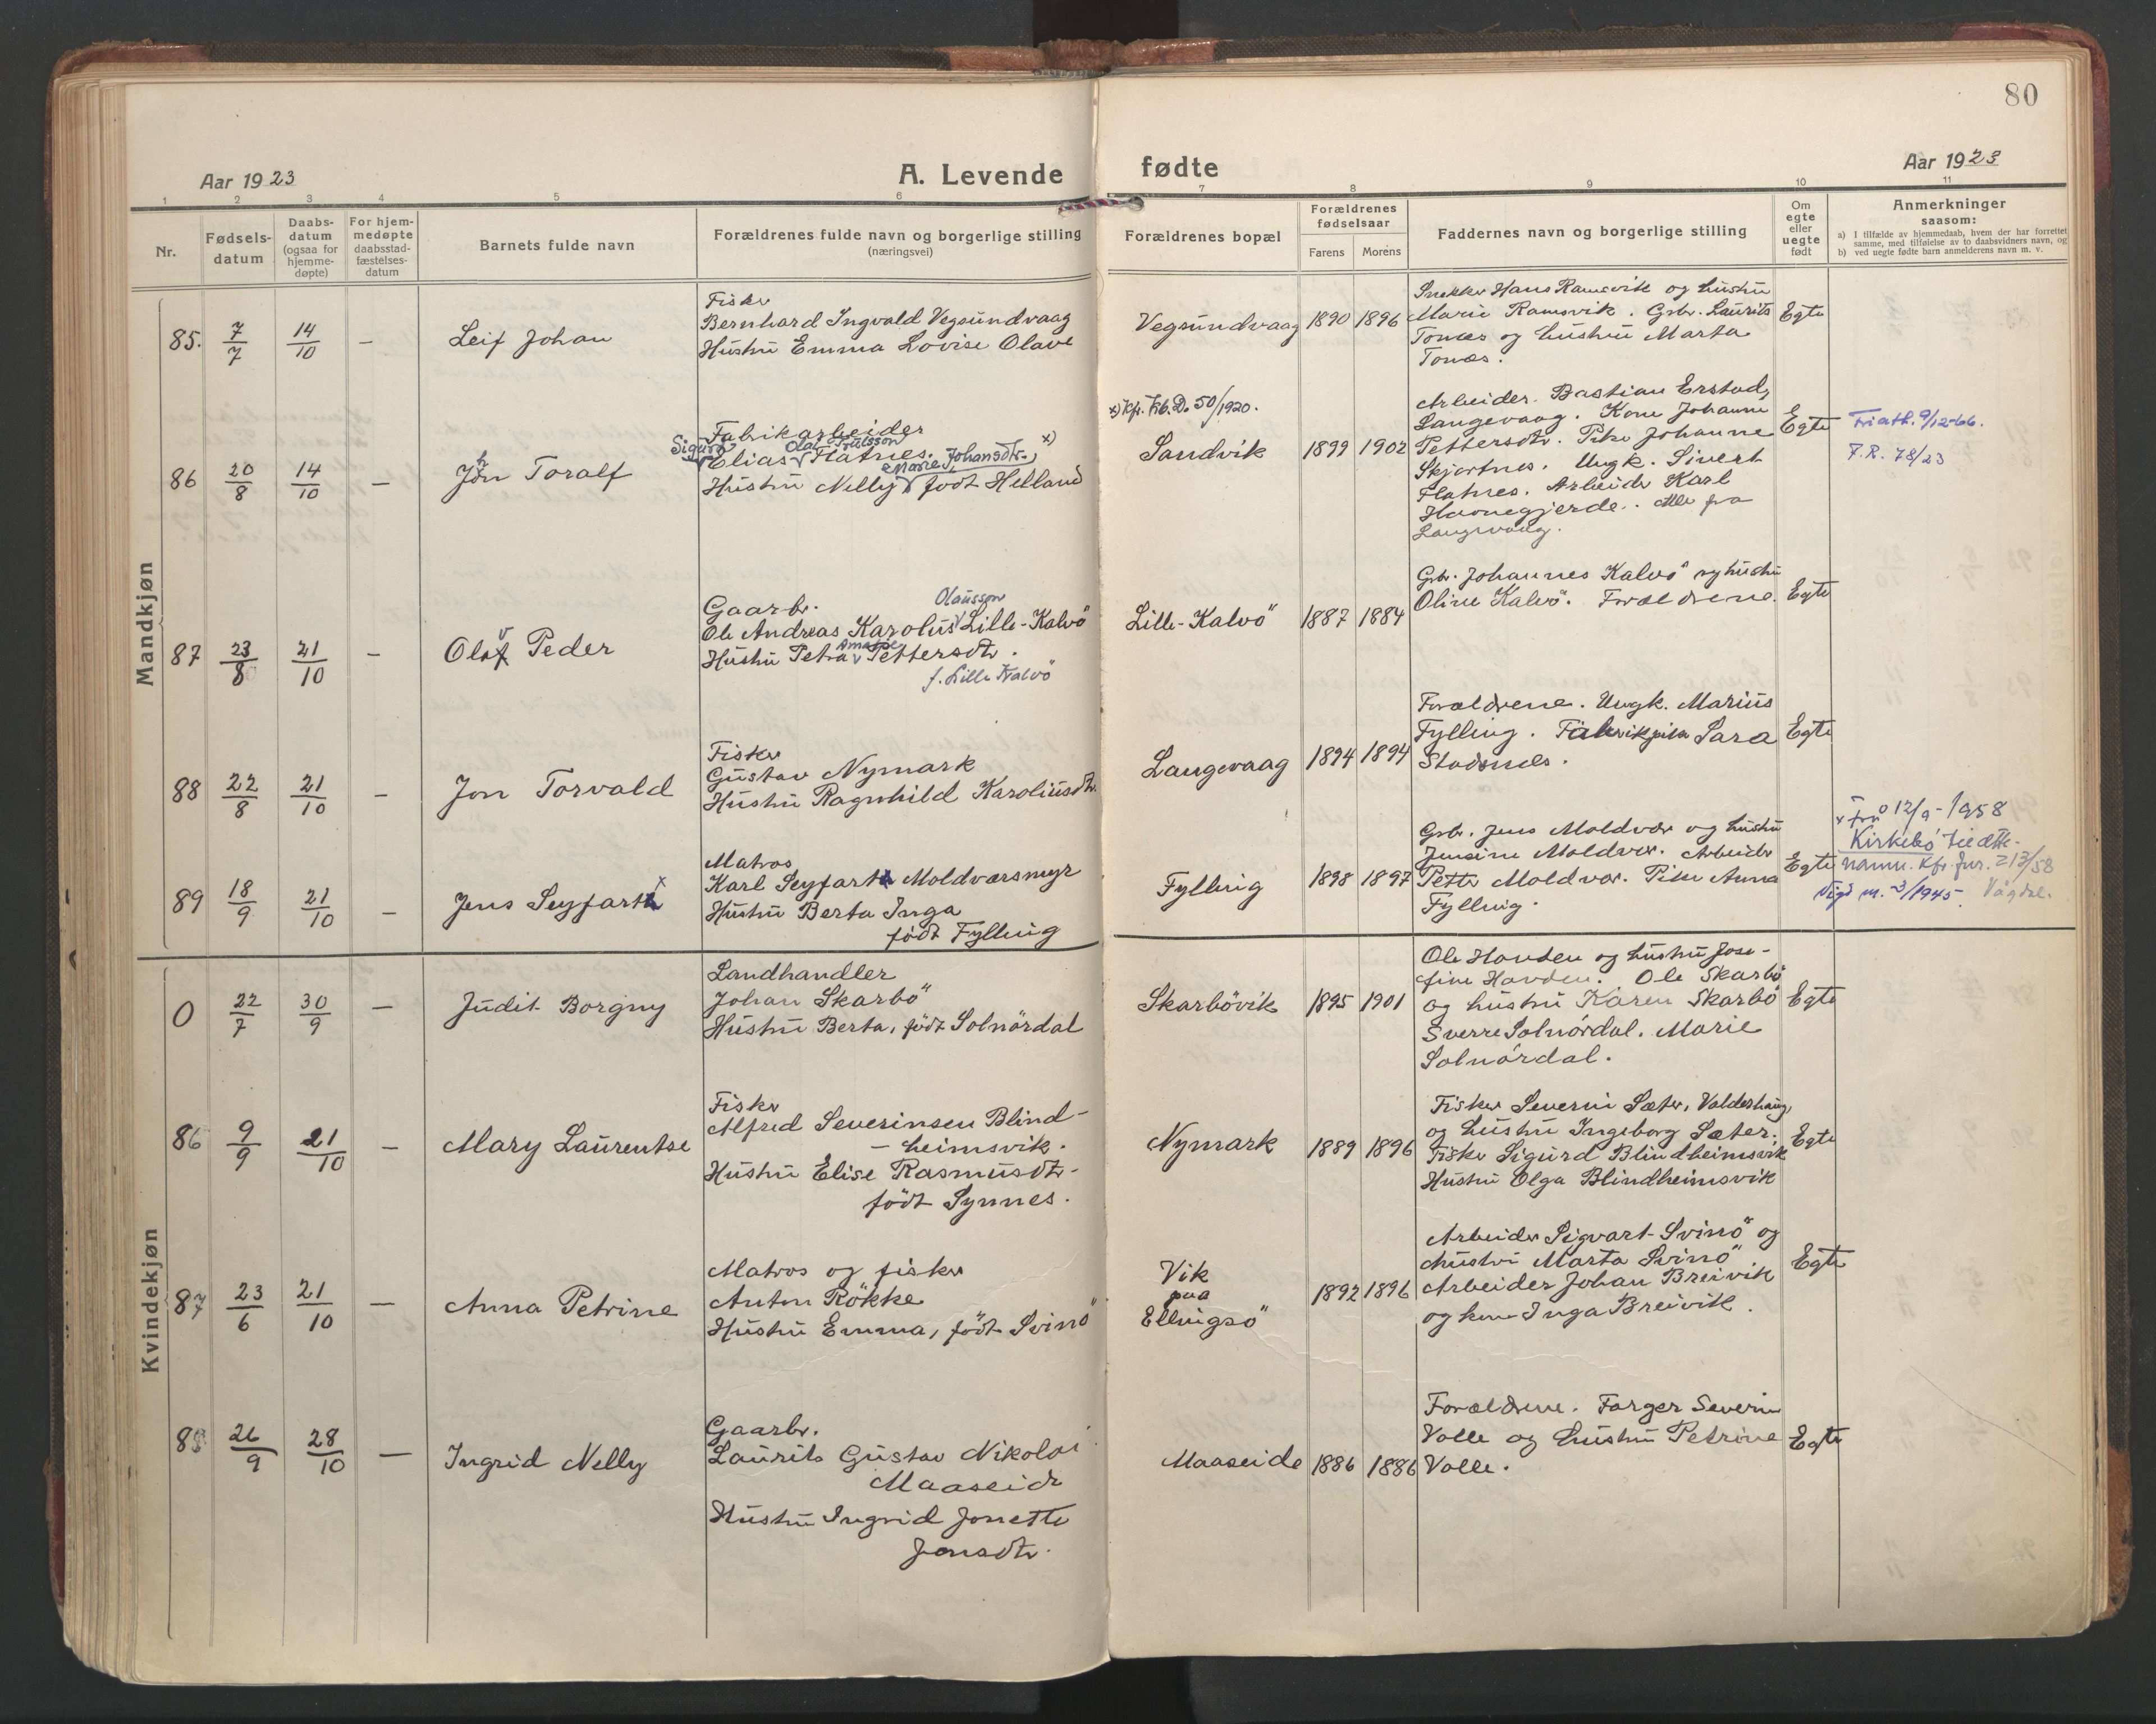 80
Aar 1923
A. Levende
fødte
Aar 1923
1 2 3 4 5 6 7 8 9 10 11
Nr.
Fødsels-
datum
Daabs-
datum
(ogsaa for
hjemme-
døpte)
For hjem-
medøpte
daabsstad-
fæstelses-
datum
Barnets fulde navn
Forældrenes fulde navn og borgerlige stilling
(næringsvei)
Forældrenes bopæl
Forældrenes
fødselsaar
Farens
Morens
Faddernes navn og borgerlige stilling
Om
egte
eller
uegte
født
Anmerkninger
saasom:
a) I tilfælde av hjemmedaab, hvem der har forrettet
samme, med tilføielse av to daabsvidners navn, og
b) ved uegte fødte barn anmelderens navn m. v.
Mandkjøn
85. 7/7 14/10 – Leif Johan
Fisker
Bernhard Ingvald Vegsundvaag
Hustru Emma Lovise Olave
Vegsundvaag 1890 1896
Snekker Hans Ramsvik og hustru
Marie Ramsvik. Gbr. Laurits
Tonæs og hustru Marta
Tonæs.
Egte
86 20/8 14/10 – John Toralf
Fabrikarbeider
Sigurd Olai Trulsson
Elias Flatnes.
Marie Johansdtr. x)
Hustru Nelly født Helland
x) Kfr. Kb. D. 50/1920.
Sandvik 1899 1902
Arbeider Bastian Erstad,
Langevaag. Kone Johanne
Pettersdtr. Pike Johanne
Skjortnes. Ungk. Sivert
Flatnes. Arbeider Karl
Havnegjerde. Alle fra
Langevaag.
Egte
Friatt. 9/12-66.
F.R. 78/23
87 23/8 21/10 – Olav Peder
Gaarbr. Olausson
Ole Andreas Karolus Lille-Kalvö
Amalie
Hustru Petra Pettersdtr.
f. Lille Kalvö
Lille-Kalvö 1887 1884
Gbr. Johannes Kalvö og hustru
Oline Kalvö. Forældrene.
Egte
88 22/8 21/10 – Jon Torvald
Fisker
Gustav Nymark
Hustru Ragnhild Karoliusdtr.
Langevaag 1894 1894
Forældrene. Ungk. Marius
Fylling. Fabrikpike Sara
Stadsnes.
Egte
89 18/9 21/10 – Jens Seyfarth x
Matros
Karl Seyfarth Moldværsmyr
Hustru Berta Inga
født Fylling
Fylling 1898 1897
Gbr. Jens Moldvær og hustru
Jensine Moldvær. Arbeider
Petter Moldvær. Pike Anna
Fylling.
Egte
x Frå 12/9-1958
Kirkebö til ætte-
namn. Kfr. Jnr. 213/58
Vigd m. 3/1945. Vågdal.
Kvindekjøn
0 22/7 30/9 – Judit Borgny
Landhandler
Johan Skarbö
Hustru Berta, født Solnördal
Skarbövik 1895 1901
Ole Havden og hustru Jose-
fine Havden. Ole Skarbö
og hustru Karen Skarbö
Sverre Solnördal. Marie
Solnördal.
Egte
86 9/9 21/10 – Mary Laurentse
Fisker
Alfred Severinsen Blind-
-heimsvik.
Hustru Elise Rasmusdtr-
født Synnes.
Nymark 1889 1896
Fisker Severin Sæter, Valdershaug,
og hustru Ingeborg Sæter.
Fisker Sigurd Blindheimsvik
Hustru Olga Blindheimsvik
Egte
87 23/6 21/10 – Anna Petrine
Matros og fisker
Anton Rökke
Hustru Emma, født Svinö
Vik
paa
Ellingsö
1892 1896
Arbeider Sigvart Svinö og
hustru Marta Svinö
Arbeider Johan Breivik
og kone Inga Breivik.
Egte
88 26/9 28/10 – Ingrid Nelly
Gaarbr.
Laurits Gustav Nikolai
Maaseide
Hustru Ingrid Jonette
Jonsdtr.
Maaseide 1886 1886
Forældrene. Farger Severin
Valle og hustru Petrine
Valle.
Egte